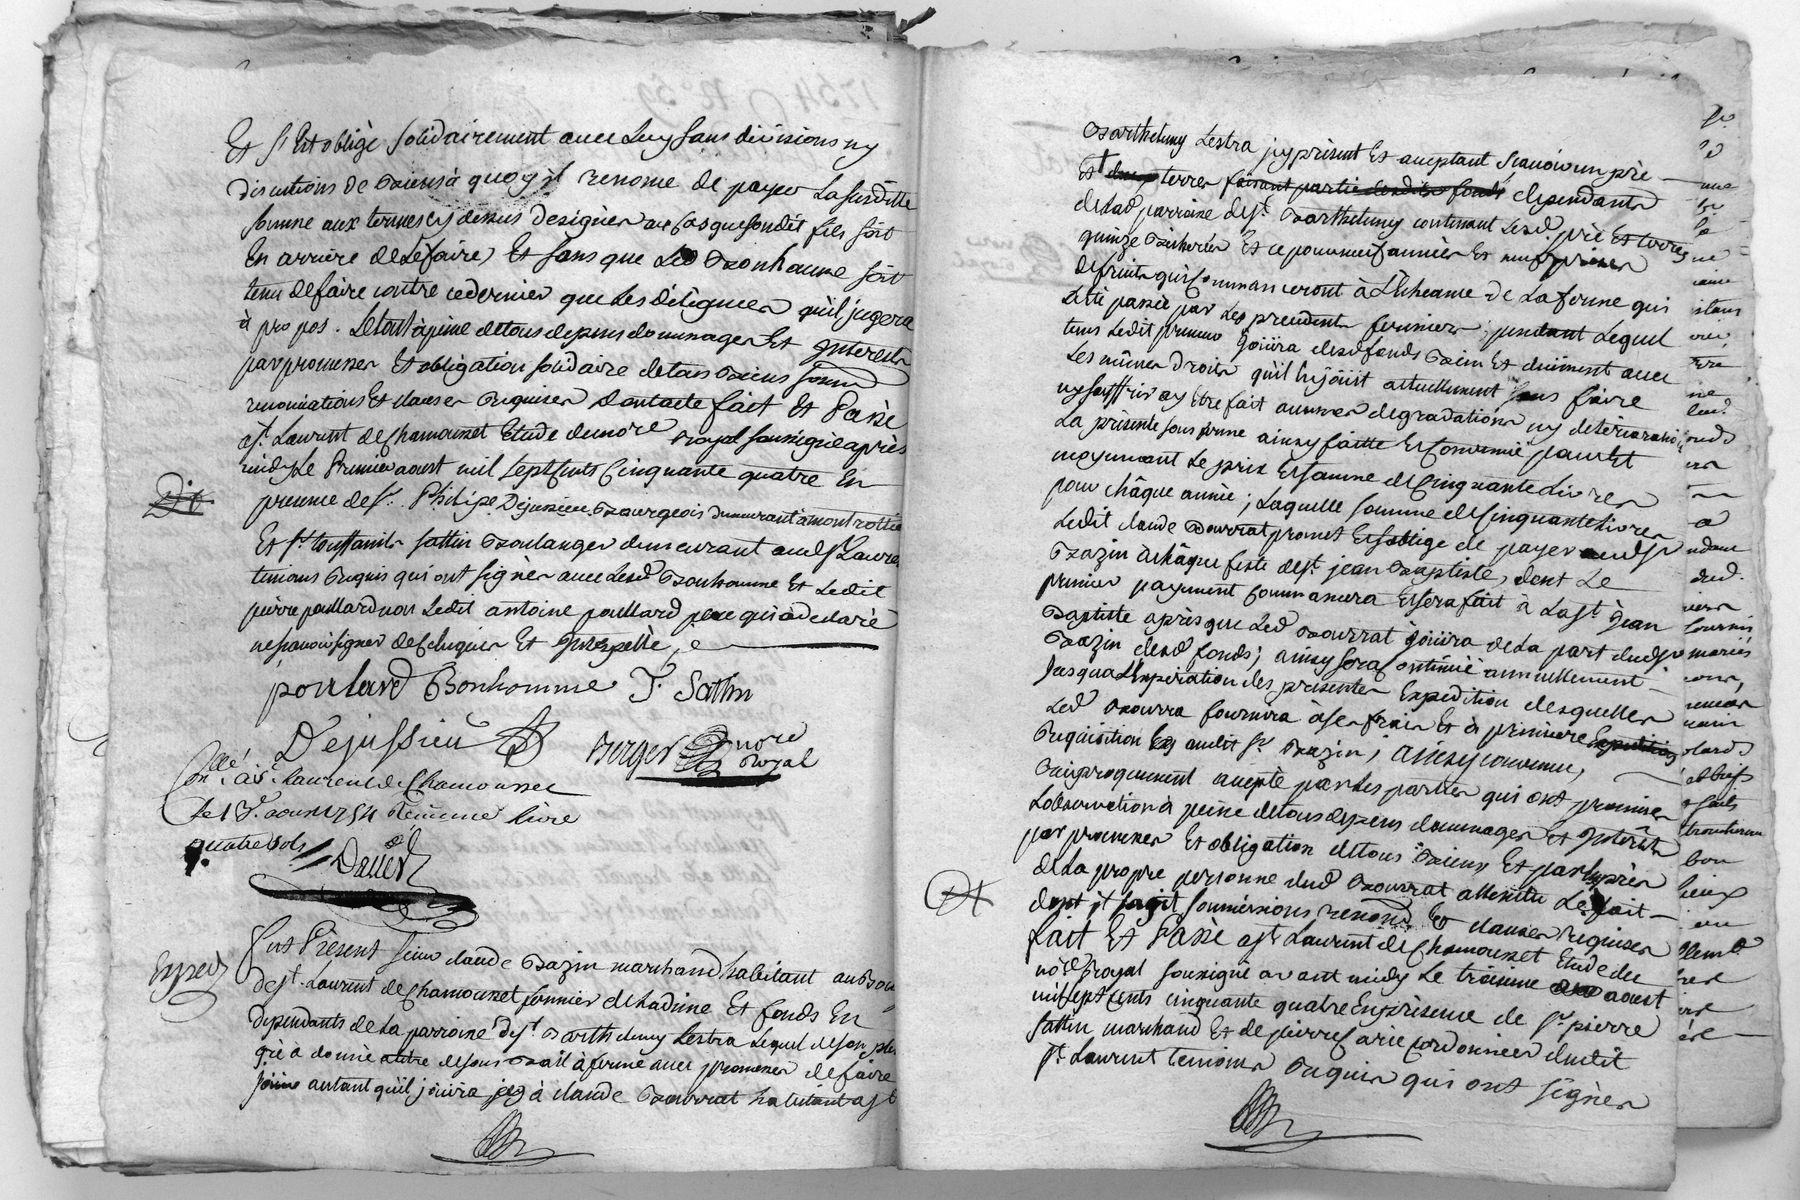 Et s'Est obligé solidairement avec Luy sans divisions ny
discutions de Biens à quoy il renonce de payer La susditte
somme aux termes cy dessus designés au Cas que sondit fils soit
En arriere de Lefaire, Et sans que Led Bonhomme soit
tenu de faire contre ce dernier que Les diligences qu'il jugera
à propos. Letout à peine detous depens dommages Et Interests
par promesses Et obligation solidaire detous Biens
renonciations Et clauses Requises Dontacte fait Et Passé
a St. Laurent de Chamousset Etude du nore Royal soussigné après
midy Le Premier aoust mil sept Cents Cinquante quatre En
presence de Sr. Philipe Dejussieu Bourgeois demeurant à montrottier
Et Sr. toussaints sattin Boulanger demeurant aud St Laurent
temoins Requis qui ont signés avec Lesd Bonhomme Et Ledit
pierre poullard non Ledit antoine poullard pere qui à declaré
nesçavoir signer de Ce Enquis Et Interpellé
poulard Bonhomme T. Sattin
Dejussieu
Berger nore Royal
Conllé à St Laurent de Chamousset
le 13e. aoust 1754 Reçu une livre
quatre sols
Exped
Fut Présent sieur claude Bazin marchand habitant au Bourg
de St. Laurent de Chamousset fermier de Ladixme Et fonds En
dependants de La parroisse de St. Barthelemy Lestra Lequel de son plein
gré a donné à titre de sous Bail à ferme avec promesse de faire
jouir autant qu'il jouira à claude Bourrat habitant a St
Barthelemy Lestra icy présent Et acceptant sçavoir un pré
Et terres faisant partie desdits fonds dependants
de Lad parroisse de St. Barthelemy contenant Lesd. pré Et terres
quinze Bicherées Et ce pour neuf années Et neuf prises
de fruits qui Commanceront à L'Echeance de La ferme qui
a Eté passée par Les precedents fermiers, pendant Lequel
tems Ledit preneur Joüira desd fonds Bien Et duëment avec
Les mêmes droits qu'il En joüit actuellement sans faire
ny souffrir ny Etre fait aucunes degradations ny deteriorations
La présente sous ferme ainsy faitte Et Convenue pour Et
moyennant Le prix Et somme de Cinquante Livres
pour châque année; Laquelle somme de Cinquante Livres
Ledit claude Bourrat promet Et s'oblige de payer audsr
Bazin à châque feste de St. jean Baptiste, dont Le
premier payement Commancera Et sera fait à La St. jean
Baptiste après que Led Bourrat joüira de La part dudsr
Bazin desd fonds; ainsy sera Continué annuellement
Jusqua L'Expiration des présentes Expedition desquelles
Led Bourra fournira à ses frais Et à premiere
Requisition audit Sr Bazin; ainsy convenu,
Reciproquement accepté par Les parties qui ont promis
L'observation à peine detous depens dommages Et Interests
par promesses Et obligation detous Biens Et par Exprès
de La propre personne dud Bourrat attendu Le fait
dont il s'agit soumissions renonc Et clauses requises
fait Et Passé a St Laurent de Chamousset Etude du
nore Royal soussigné avant midy Le troisieme aoust
mil sept cents cinquante quatre En presence de Sr. pierre
sattin marchand Et de pierre farie Cordonnier dudit
St. Laurent temoins Requis qui ont signés